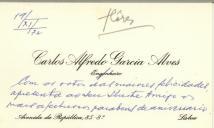 19/
XII/
172
Flôres
Carlos Alfredo Garcia Alves
Engenheiro
Com os votos das maiores felicidades
apresenta ao seu Ilustre Amigo os
mais afectuosos parabens de aniversário
Avenida da República, 85-8º
Lisboa